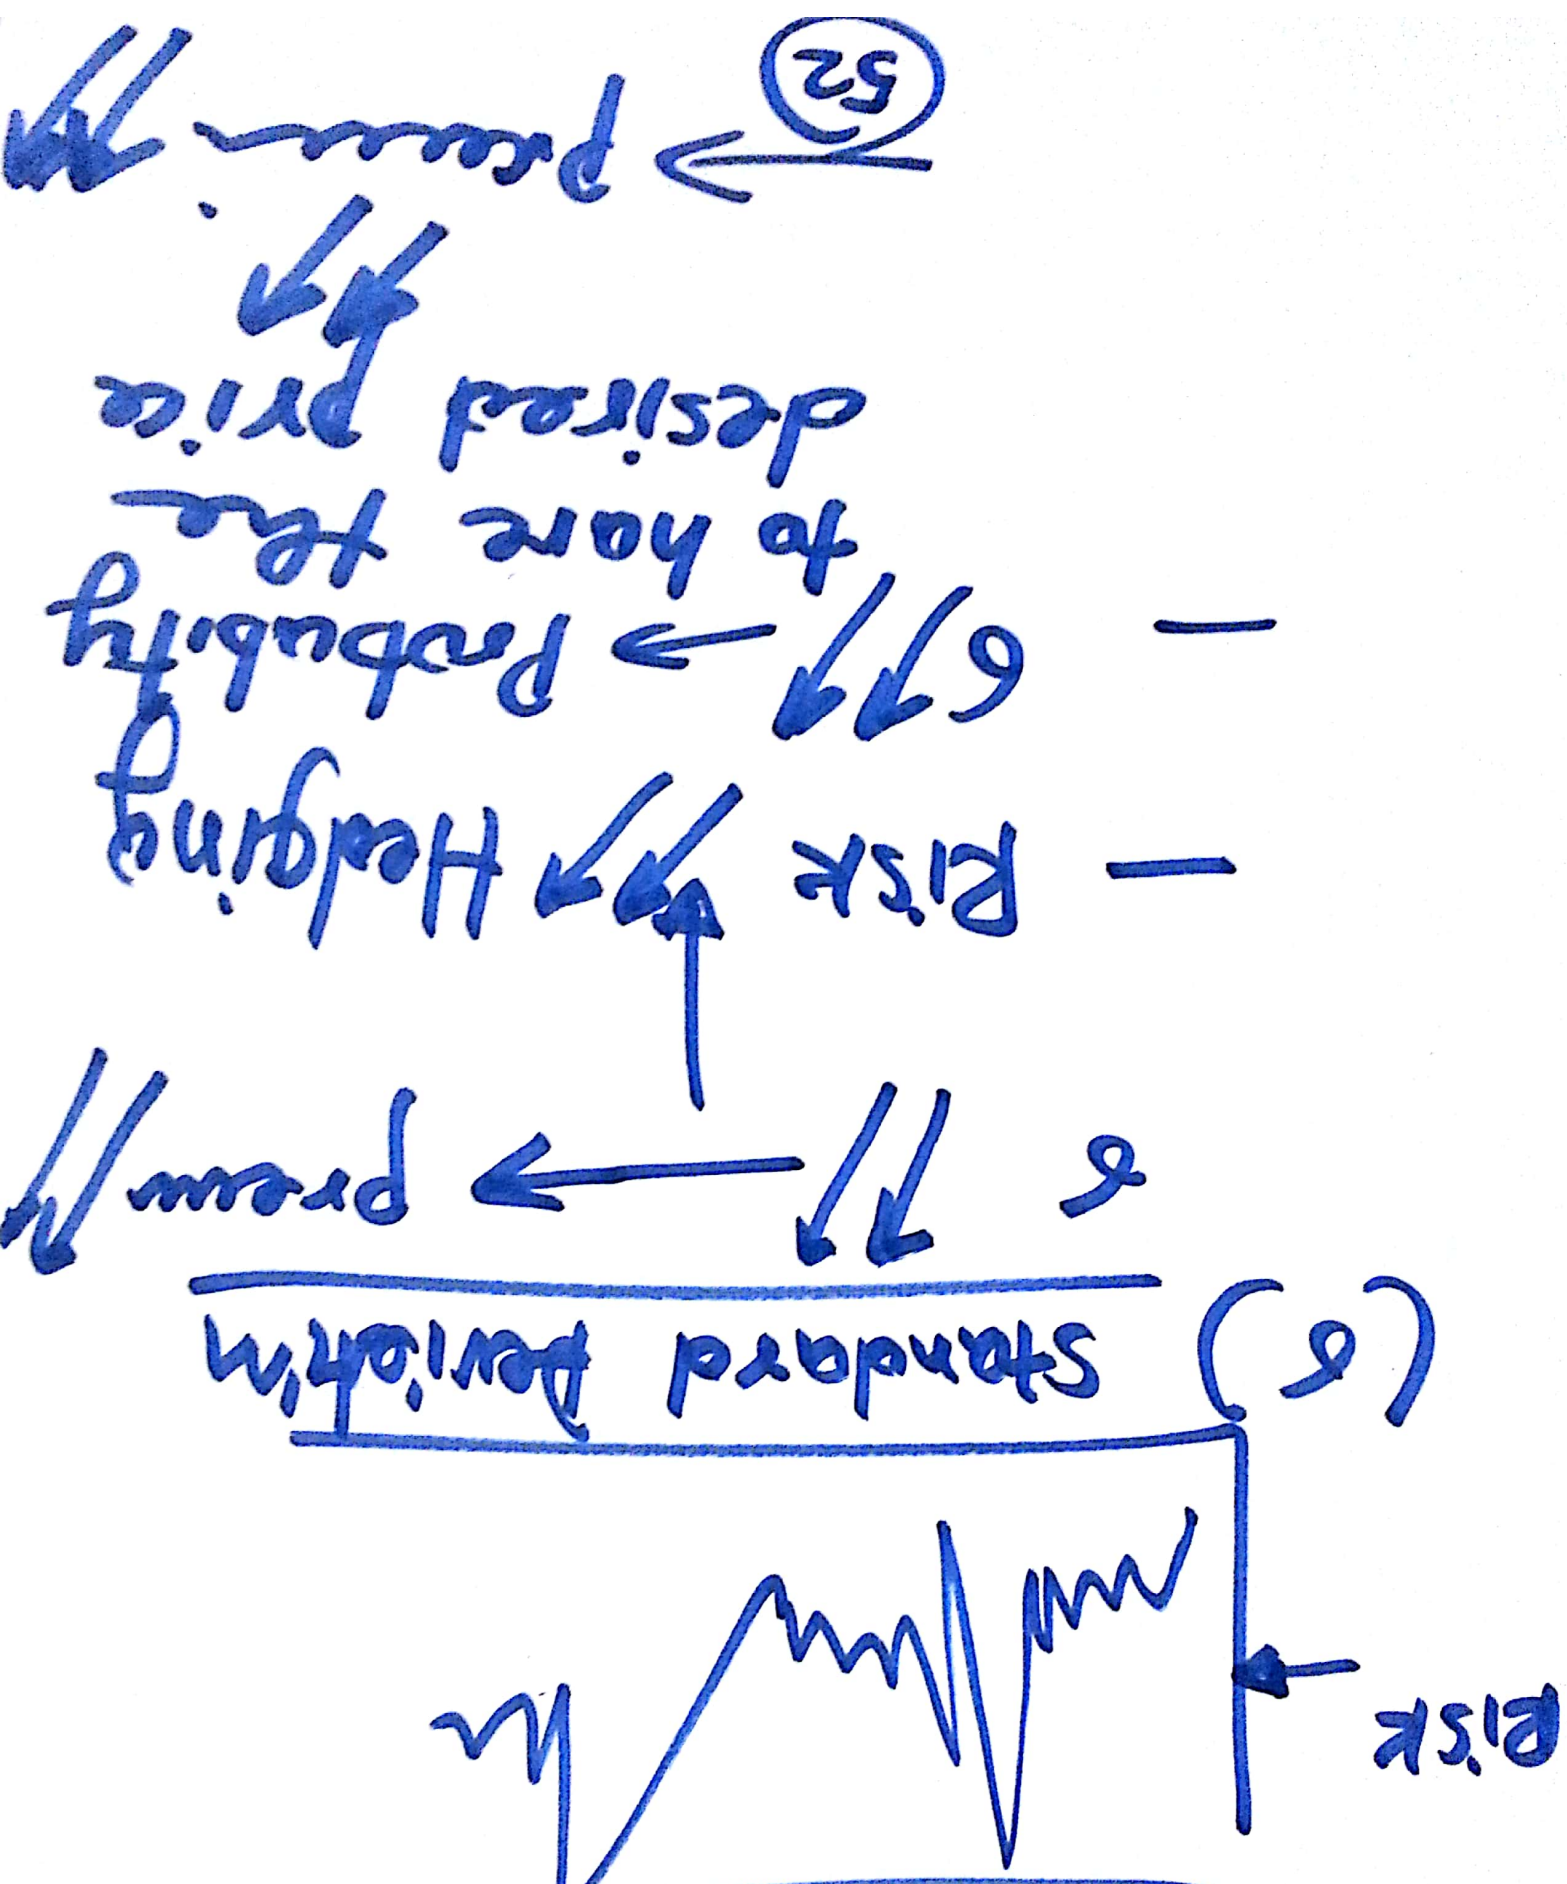 Risk
(σ) Standard Deviation
σ ↑↑ → prem ↑↑
— Risk ↑↑ Hedging
— σ ↑↑ → Probabity
to have the
desired price
↑↑
→ ↑↑
52